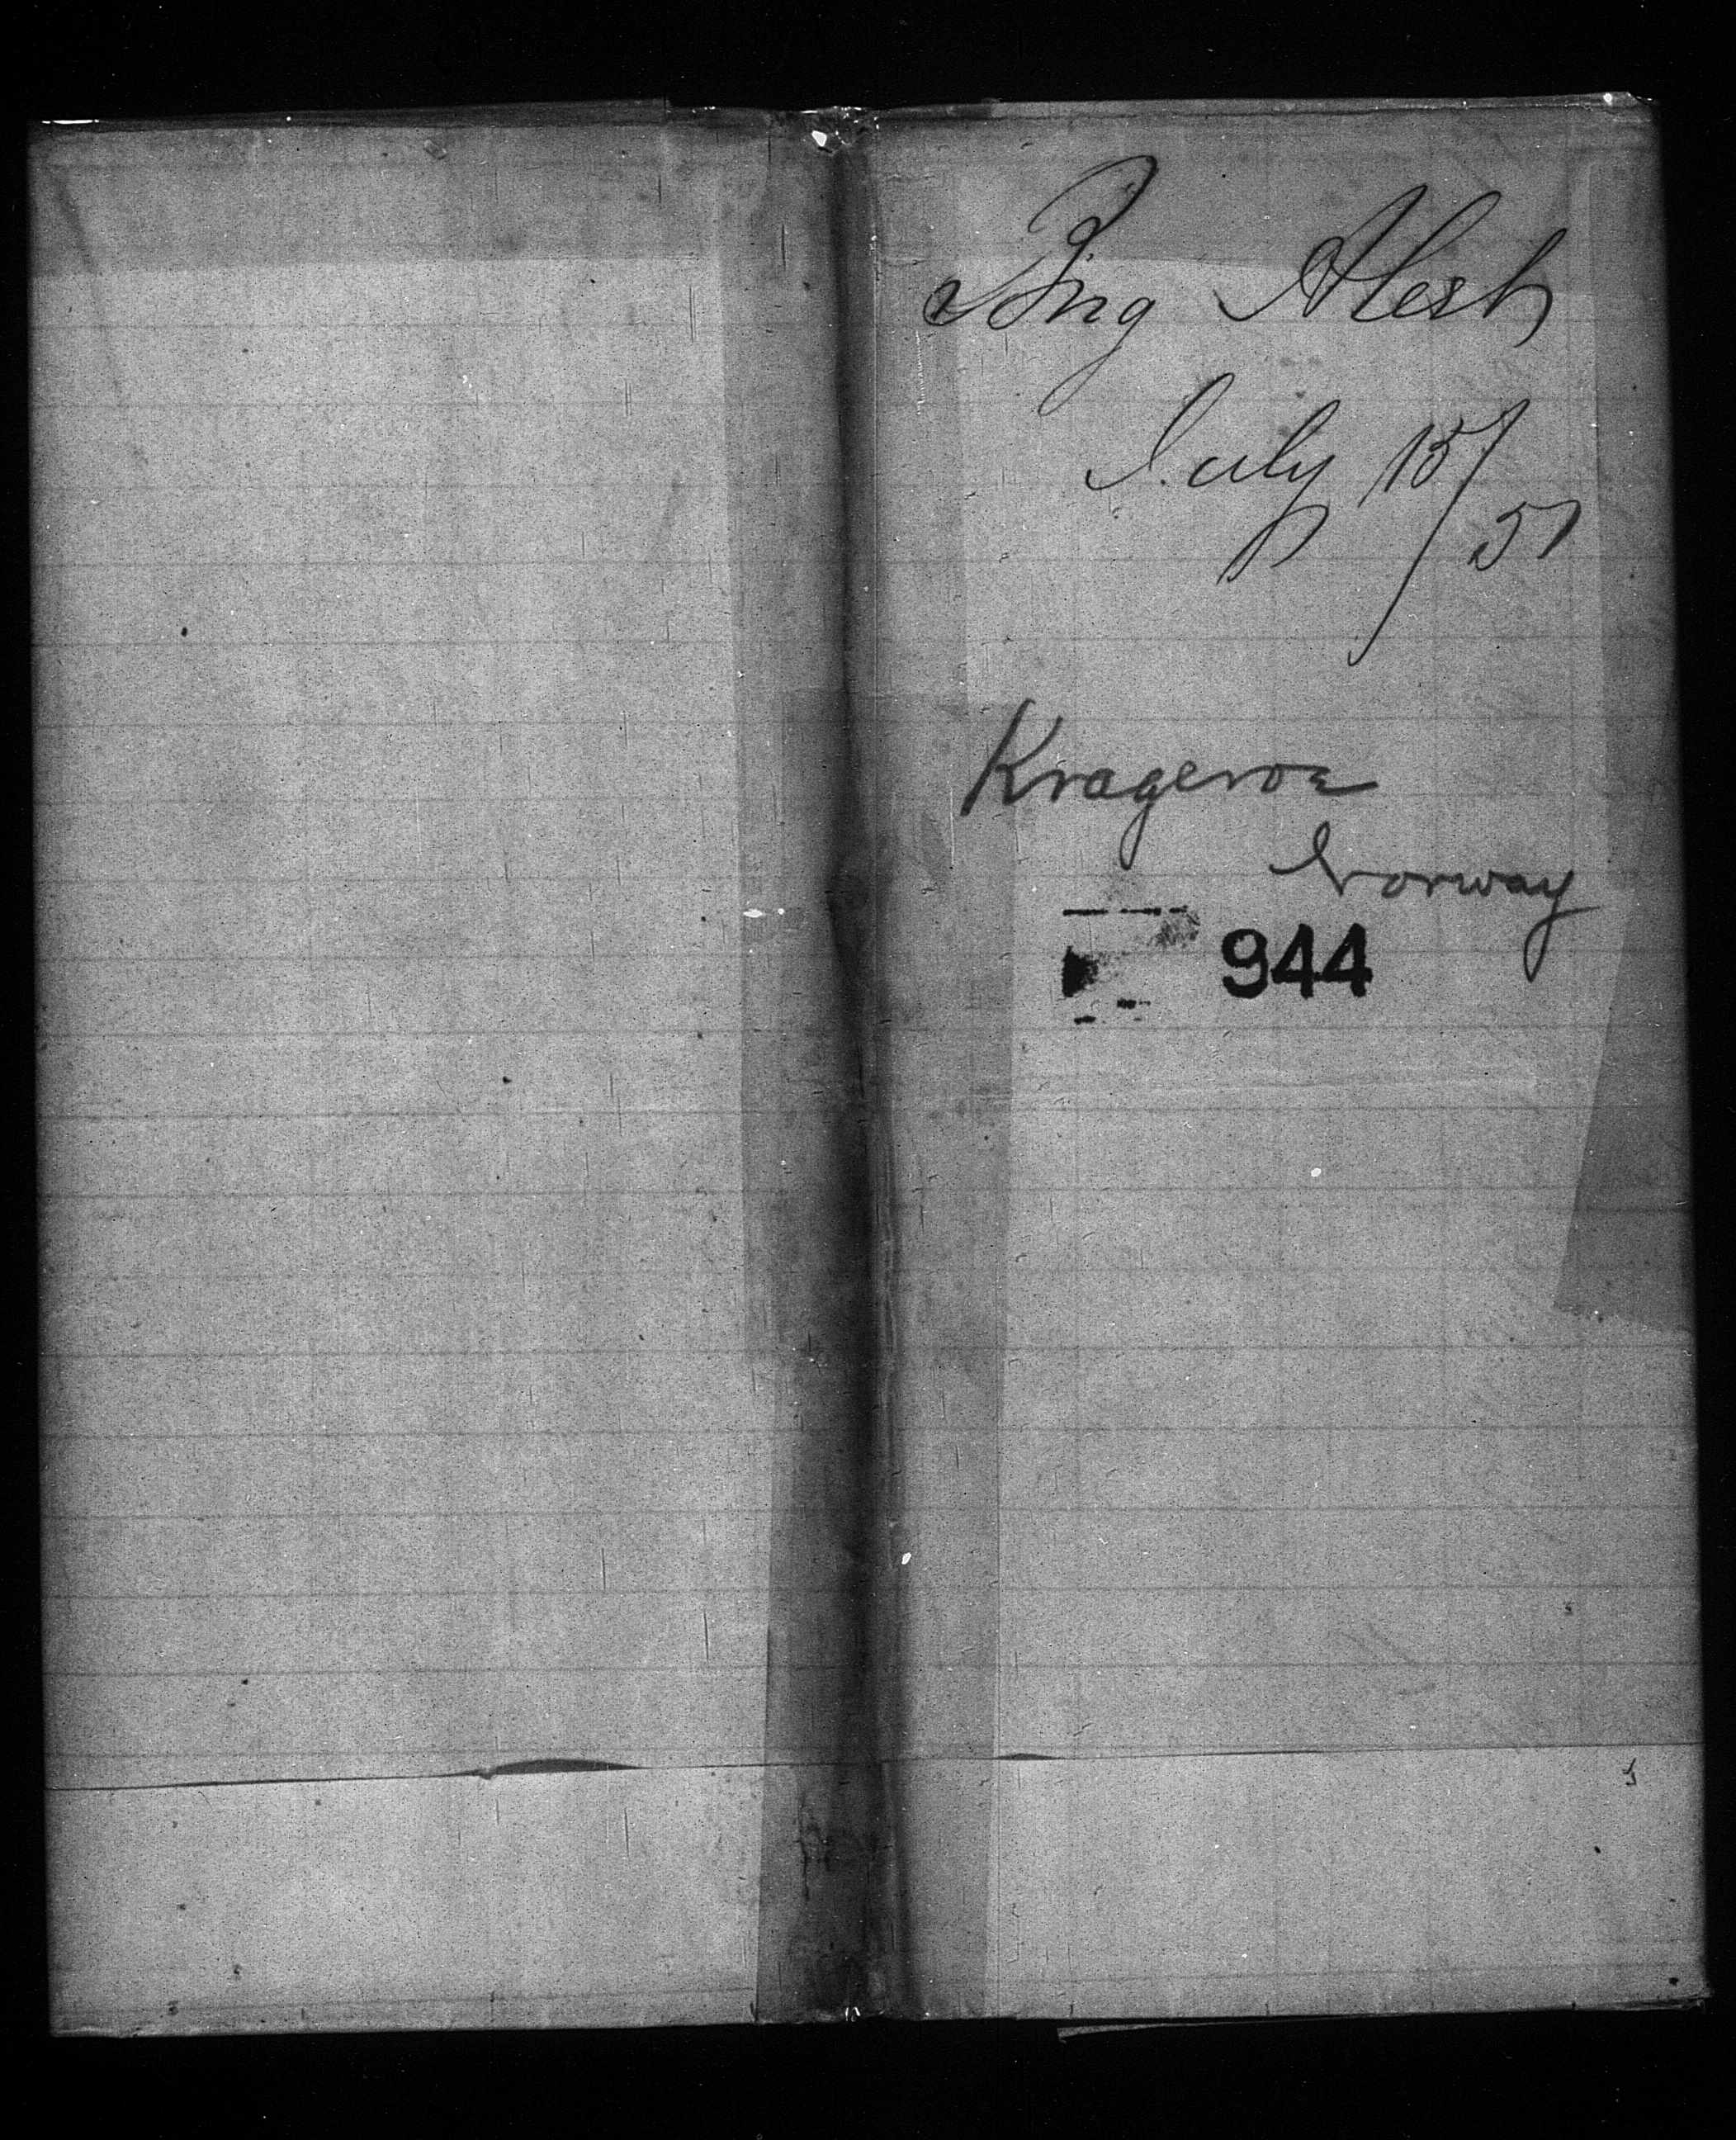 Brig Alert
July 15/51
Krageroe
Norway
944